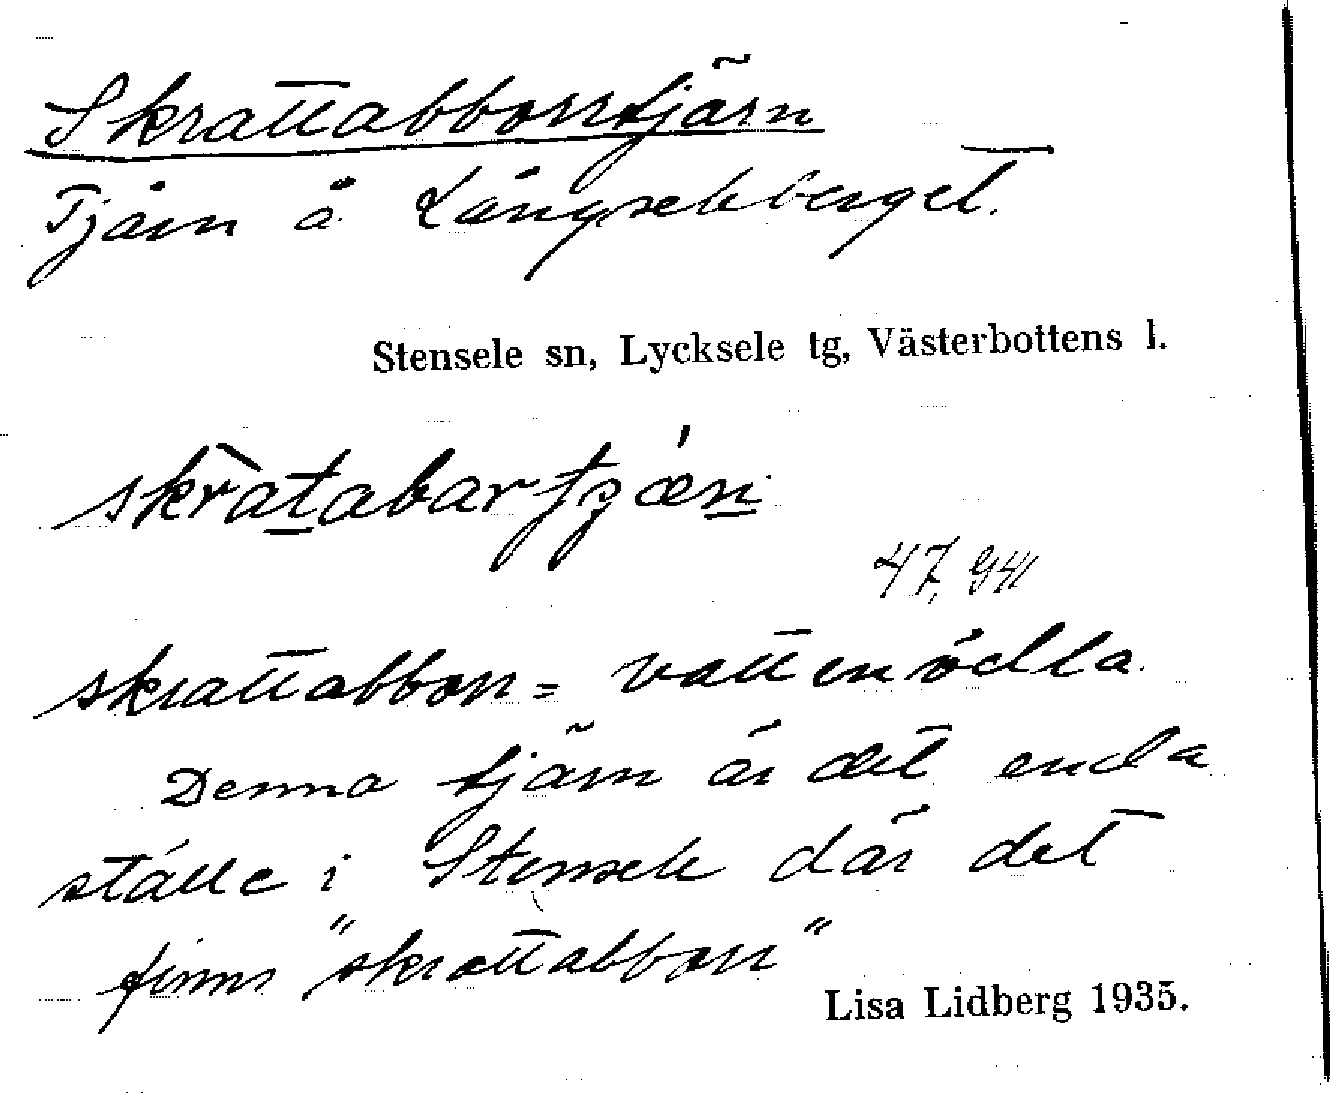 Skrattabborrtjärn
Tjärn å Långseleberget.
Stensele sn, Lycksele tg, Västerbottens l.
skratabartjæn
47, 941
skrattabborr = vattenödla
Denna tjärn är det enda
ställe i Stensele där det
finns "skrattabborr"
Lisa Lidberg 1935.